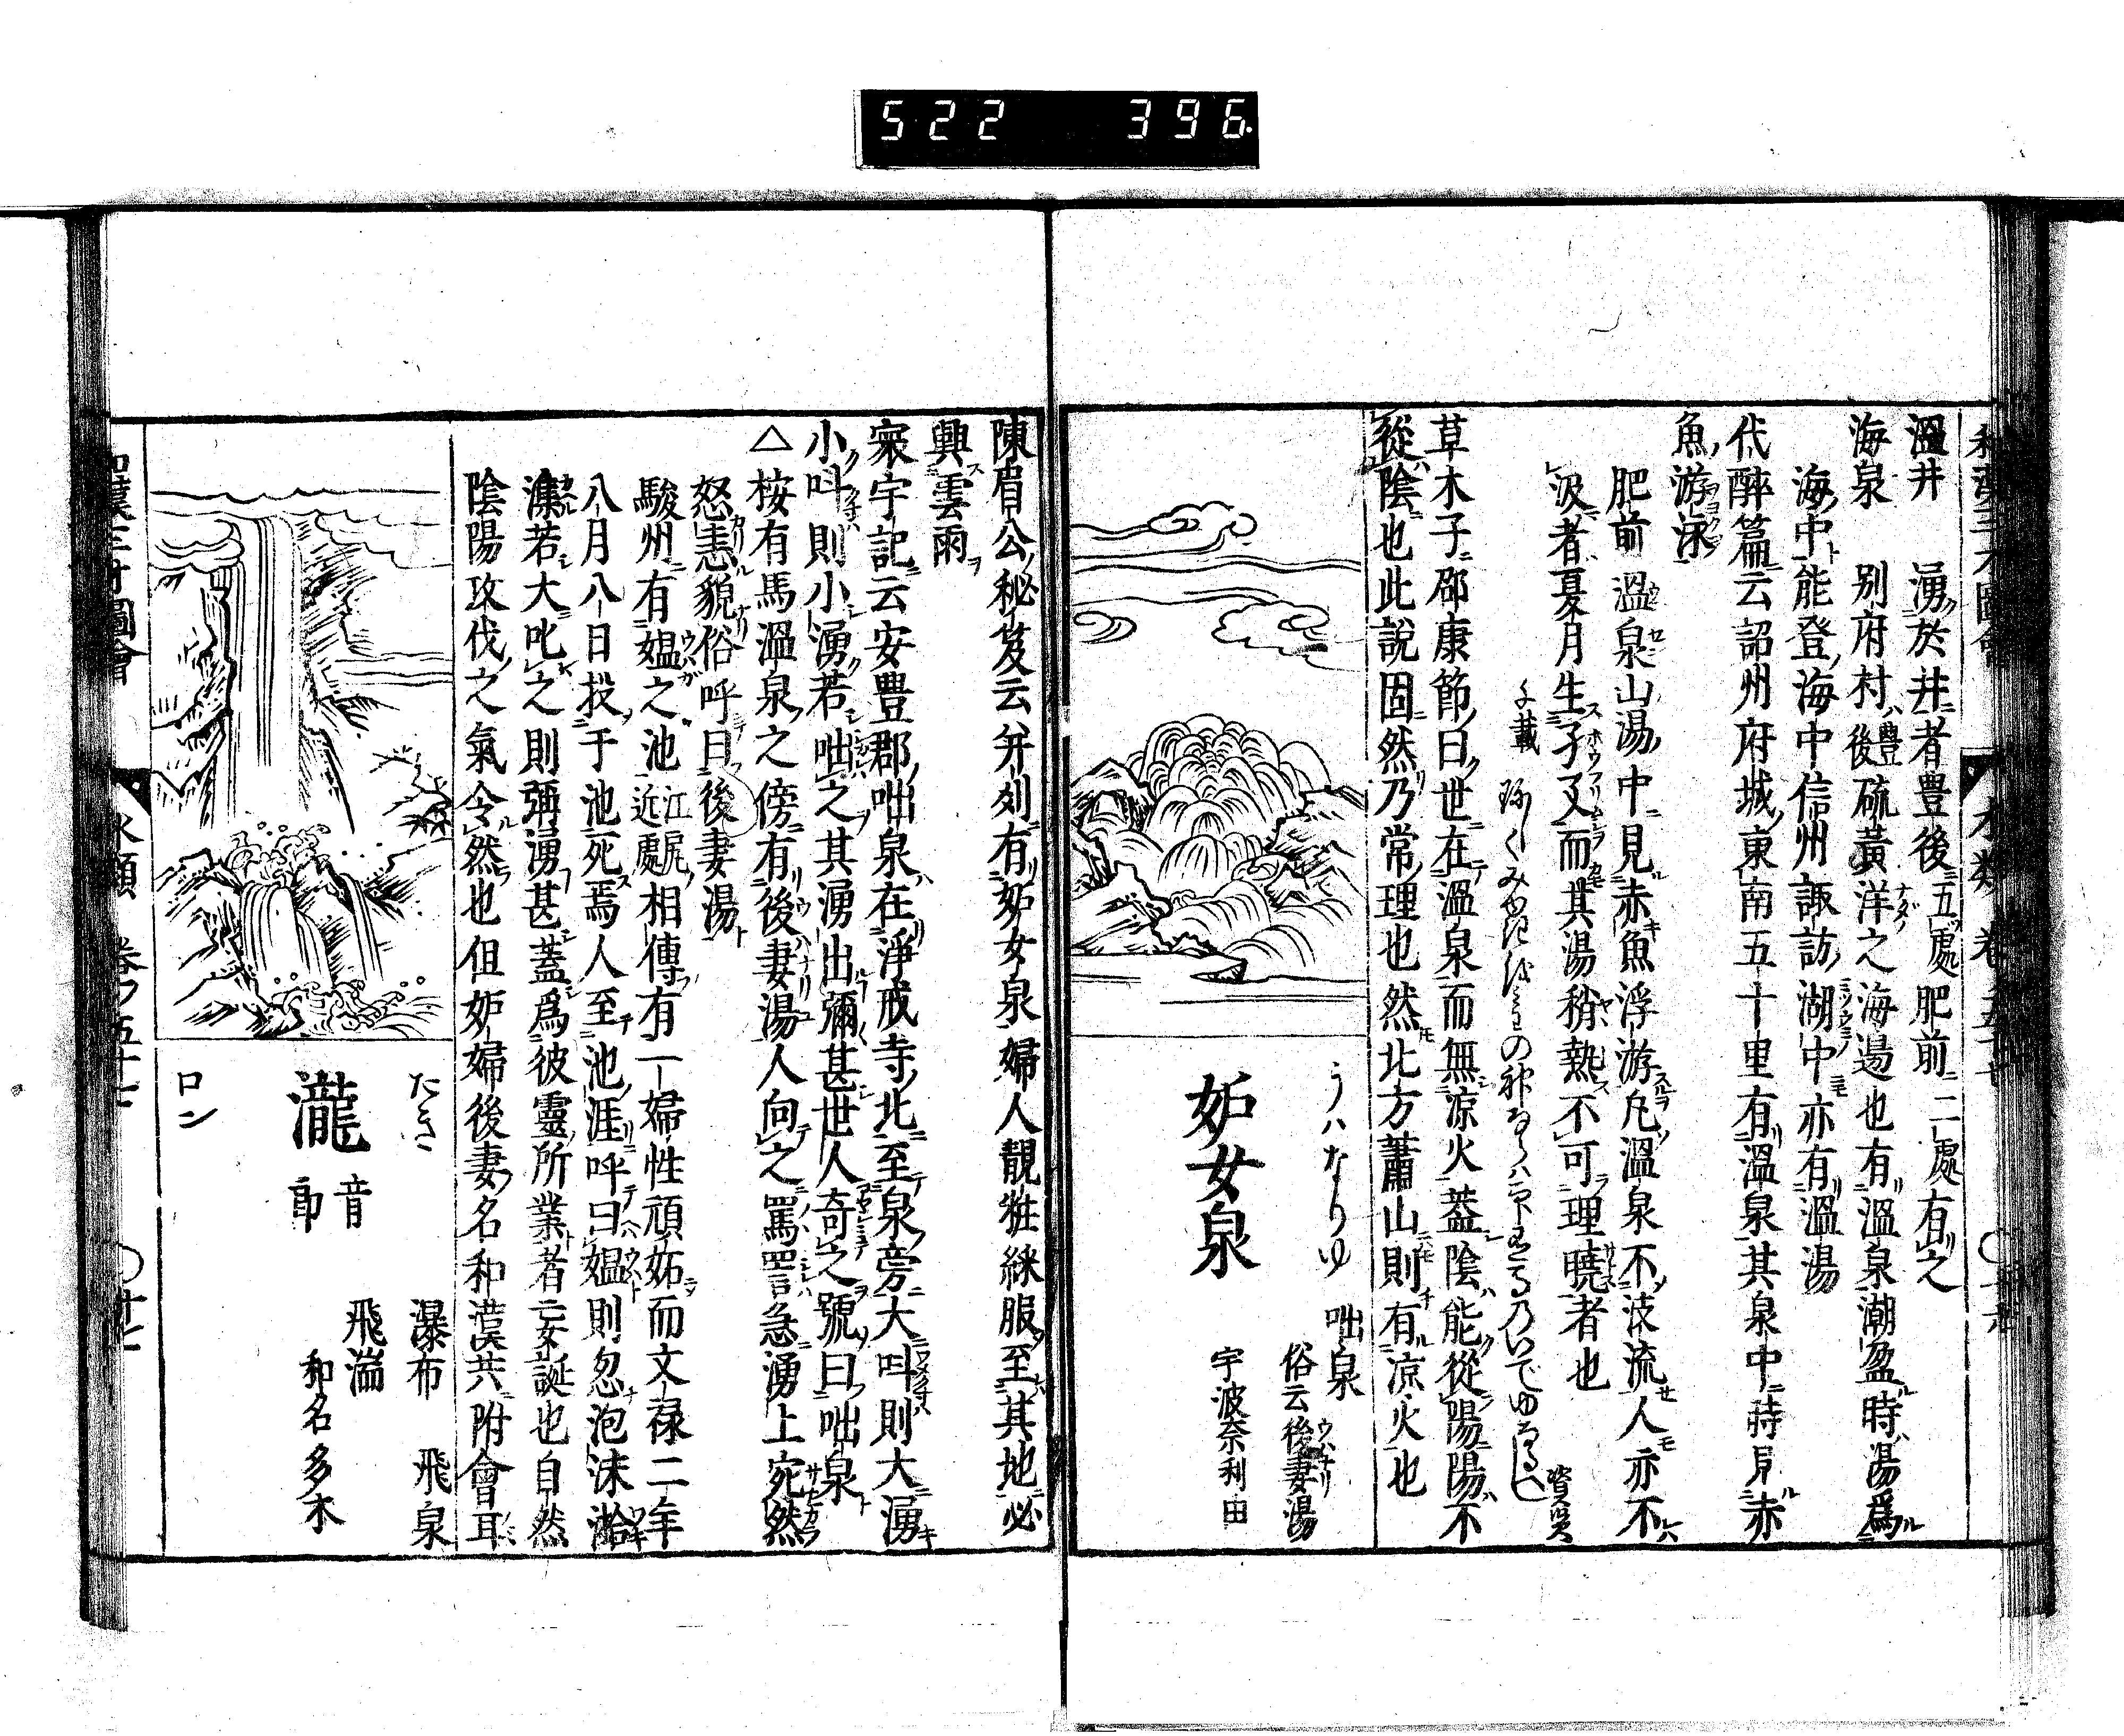 522 396.
和漢三才圖會 水類 卷ノ五十七
溫井 湧於井者豊後五處肥前二處有之
海泉 別府村豊後硫黃洋之海邉也有溫泉潮盈時湯爲
海中能登海中信州諏訪湖中亦有溫湯
代醉篇云詔州府城東南五十里有溫泉其泉中時有赤
魚游泳
肥前溫泉山湯中見赤魚浮游凡溫泉不流人亦不
汲者夏月生子又而其湯稍熱不可理曉者也
千載
資賢
草木子邵康節曰世在溫泉而無涼火蓋陰能從陽陽不
從陰也此說固然乃常理也然北方蕭山則有涼火也
うハなりゆ
妬女泉
咄泉
俗云後妻湯
宇波奈利由
陳眉公秘笈云并州有妬女泉婦人靚粧綵服至其地必
興雲雨
寰宇記云安豊郡咄泉在淨戒寺北至泉旁大叫則大湧
小叫則小湧若咄之其湧出彌甚世人奇之號曰咄泉
△桉有馬溫泉之傍有後妻湯人向之罵詈急湧上宛然
怒恚貌俗呼曰後妻湯
駿州有媼之池江尻近處相傳有一婦性頑妬而文禄二年
八月八日投于池死焉人至池涯呼曰媼則忽泡沫湧
濼若大叱之則彌湧甚蓋爲彼靈所業者妄誕也自然
陰陽攻伐之氣令然也但妬婦後妻名和漢共附會耳
たき
瀧 音郎
ロン
瀑布 飛泉
飛湍
和名多木
和漢三才圖會 水類 卷ノ五十七 〇廿七